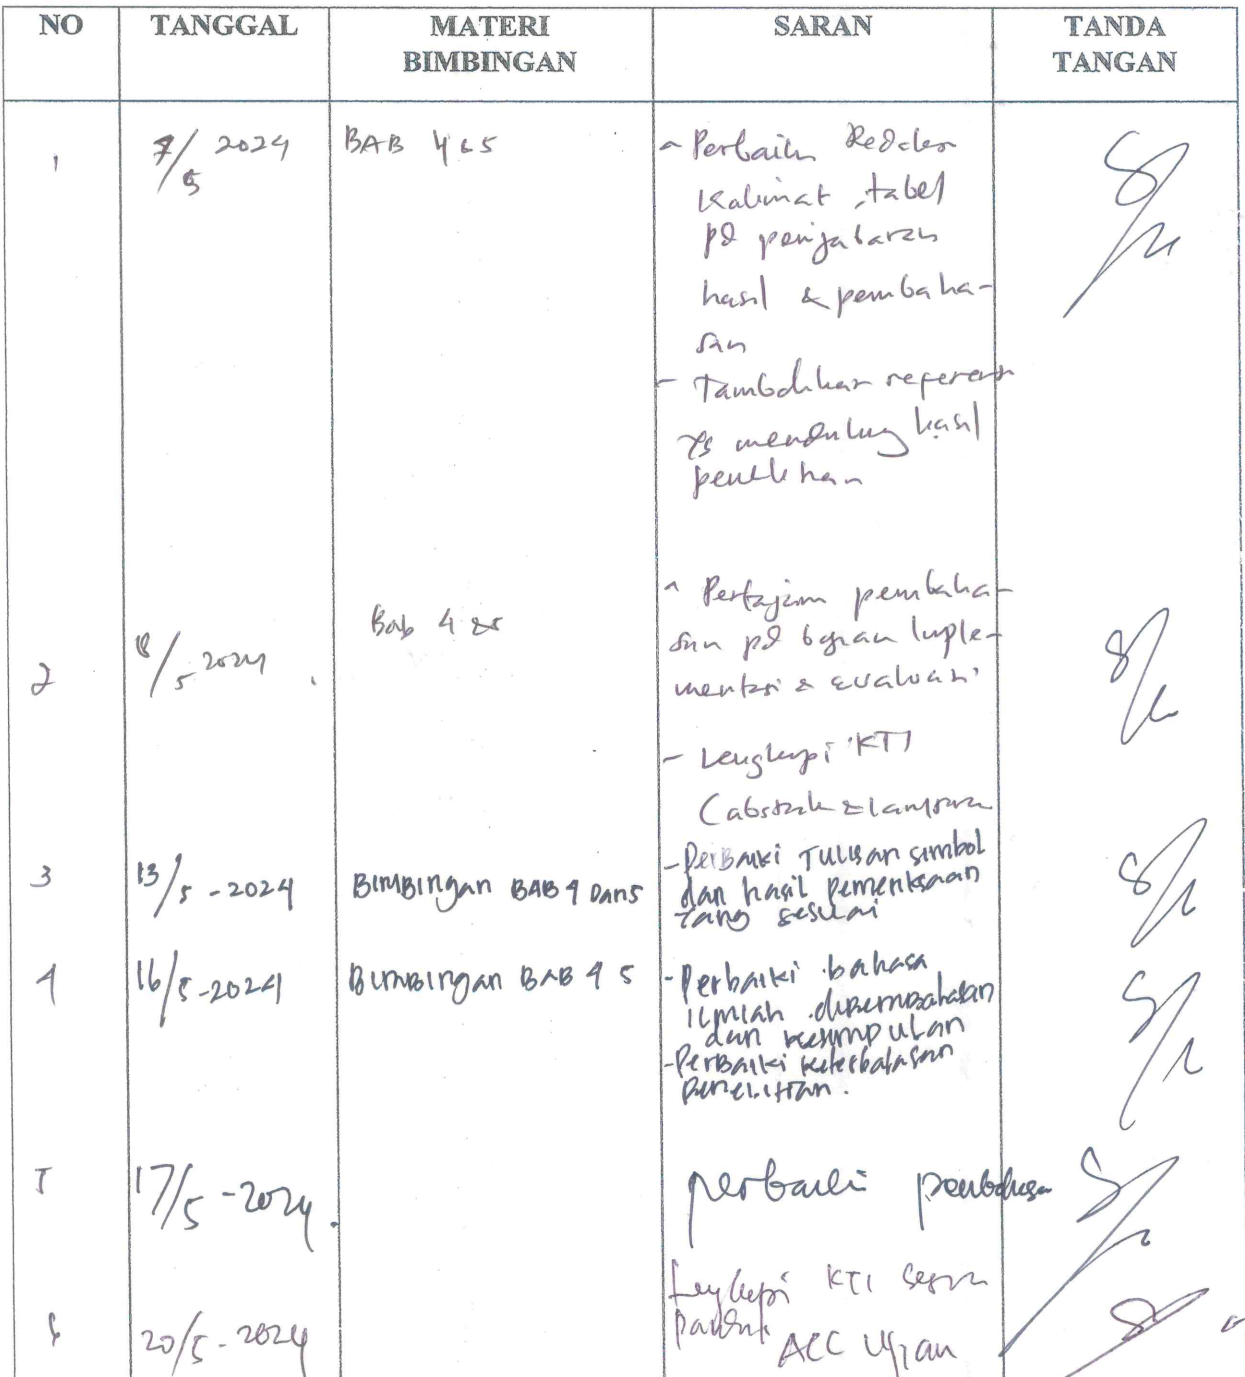 NO TANGGAL MATERI BIMBINGAN SARAN TANDA TANGAN
1 7/5 2024 BAB 4 & 5
- Perbaiki Redaksi
Kalimat, tabel
pd penjabaran
hasil & pembaha-
san
- Tambahkan referensi
yg mendukung hasil
penelitian
2 8/5 2024 Bab 4 & 5
- Pertajam pembaha-
san pd bagian Imple-
mentasi & evaluasi
- Lengkapi KTI
(abstrak & lampiran
3 13/5 - 2024 BIMBINGAN BAB 4 DAN 5
- Perbaiki Tulisan simbol
dan hasil pemeriksaan
yang sesuai
4 16/5 - 2024 BIMBINGAN BAB 4 5
- Perbaiki bahasa
ilmiah dipembahasan
dan kesimpulan
- Perbaiki keterbatasan
penelitian.
5 17/5 - 2024.
perbaiki pembahasan
6 20/5 - 2024
Lengkapi KTI sesuai
panduan
ACC Ujian